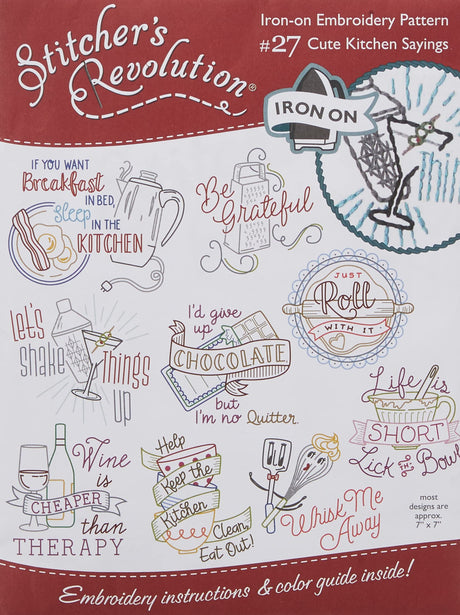 Stitcher's
Revolution®
Iron-on Embroidery Pattern
#27 Cute Kitchen Sayings
IRON ON
Thin
IF YOU WANT
Breakfast
IN BED,
Sleep
IN THE
KITCHEN
Be
Grateful
JUST
Roll
WITH IT
Let's
shake
Things
UP
I'd give
up
CHOCOLATE
but
I'm no Quitter.
Life is
SHORT
Lick the Bowl
Wine
is
CHEAPER
than
THERAPY
Help
Keep the
Kitchen
Clean,
Eat Out!
Whisk Me
Away
most
designs are
approx.
7" x 7"
Embroidery instructions & color guide inside!